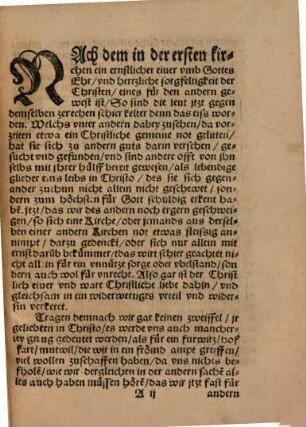 NAch dem in der ersten kir-
chen ein ernstlicher eiuer vmb Gottes
Ehr/ vnd hertzliche sorgfeltigkeit der
Christen/ eines für den andern ge-
west ist/ So sind die leut jtzt gegen
demselben zerechen schier kelter denn das eiß wor-
den. Welchs vnter andern dabey zusehen/ da vor-
zeiten etwa ein Christliche gemeine not gelitten/
hat sie sich zu andern guts darin versehen/ ge-
sucht vnd gefunden/ vnd sind andere offt von jhn
selbs mit jhrer hülff bereit gewesen/ als lebendige
glieder eins leibs in Christo/ des sie sich gegen-
ander zuthun nicht allein nicht geschewet/ son-
dern zum höchsten für Gott schuldig erkent ha-
ben. jtzt/ das wir des andern noch ergern geschwei-
gen/ so sich eine Kirche/ oder jemands aus dersel-
ben einer andern Kirchen not etwas fleissig an-
nimpt/ darzu gedenckt/ oder sich nur allein mit
ernst darüb bekümmert/ das wirt schier geachtet nicht
allein für ein vnnütze sorge oder vbelstand/ son-
dern auch wol für vnrecht. Also gar ist der Christ
lich eiuer vnd ware Christliche liebe dahin/ vnd
gleichsam in ein widerwertiges vrteil vnd wider-
sin verkeret.
Tragen demnach wir gar keinen zweiffel/ jr
geliebten in Christo/ es werde vns auch mancher-
ley gnug gedeutet werden/ als für ein furwitz/ hof
fart/ mutwil/ die wir in ein frömd ampt greiffen/
viel wollen zuschaffen haben/ da vns nichts be-
fholen/ wie wir dergleichen in der andern sachen al-
les auch haben müssen hören/ das wir jtzt fast für
A ij andern